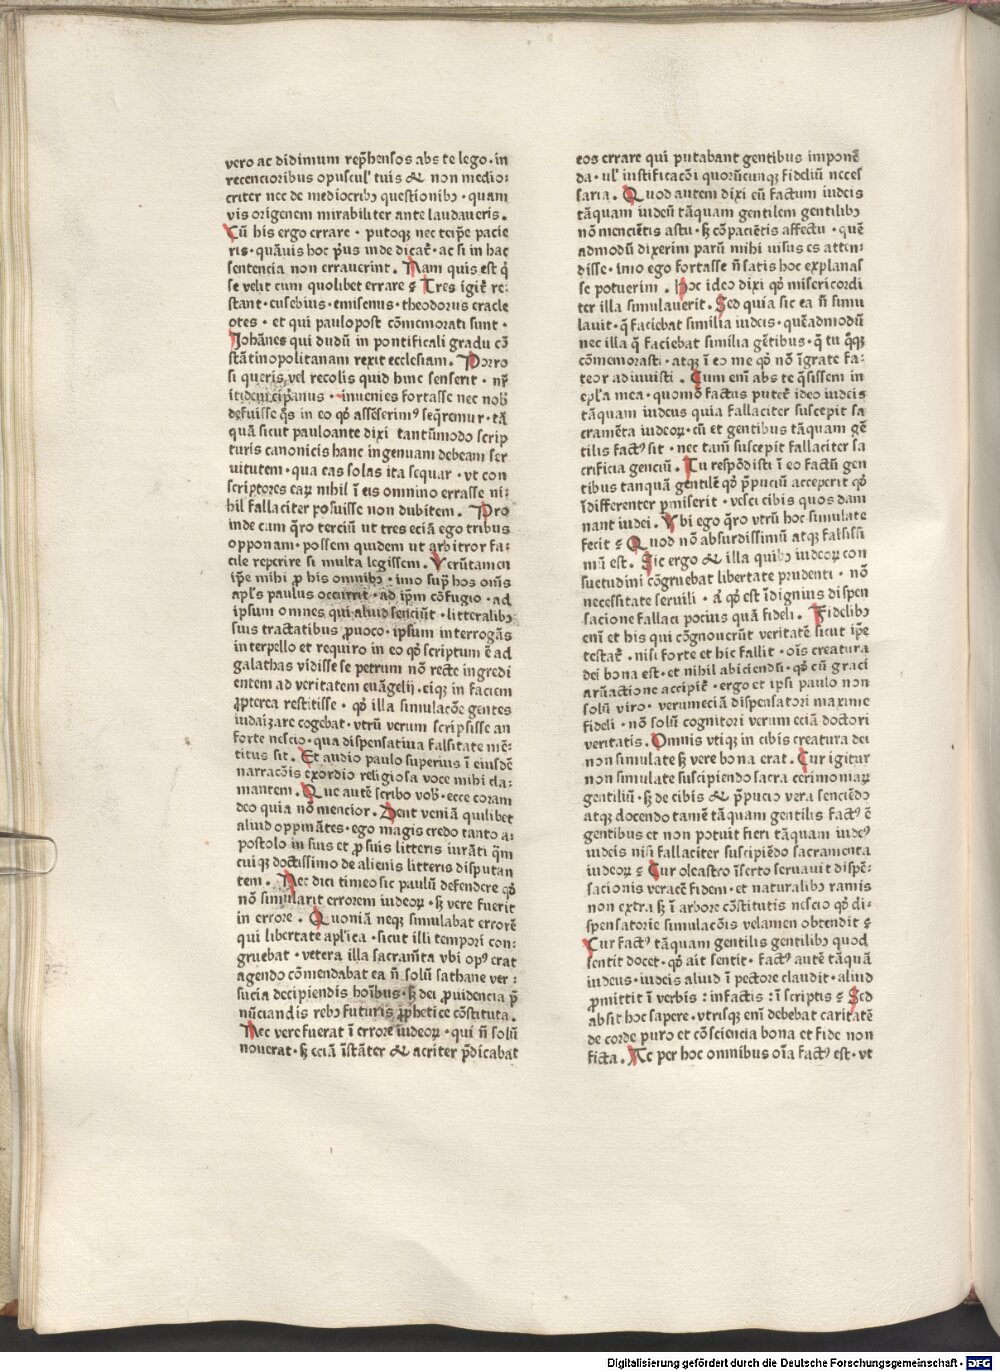 vero ac didimum rep̄hensos abs te lego · in
recencioribus opuscul' tuis & non medio:
criter nec de mediocribꝫ questionibꝫ · quam
vis origenem mirabiliter ante laudaueris .
Cū his ergo errare · putoqꝫ nec teip̄e pacie
ris · quāuis hoc p̄us inde dicat̄ · ac si in hac
sentencia non errauerint . Nam quis est q̄
se velit cum quolibet errare ⁊ Tres igit̄ re:
stant · eusebius · emisenus · theodorus eracle
otes · et qui paulopost cōmemorati sunt ·
Johānes qui dudū in pontificali gradu cō
stātinopolitanam rexit ecclesiam . Porro
si queris vel recolis quid hinc senserit · nr̄
itidem cip̄anus · inuenies fortasse nec nob̄
defuisse q̄s in eo qď assēserimꝰ seq̄remur · tā
quā sicut pauloante dixi tantūmodo scrip
turis canonicis hanc ingenuam debeam ser
uitutem · qua eas solas ita sequar · vt con
scriptores eaꝝ nihil ī eis omnino errasse ni:
hil fallaciter posuisse non dubitem . Pro
inde cum q̄ro terciū ut tres eciā ego tribus
opponam · possem quidem ut arbitror fa:
cile reperire si multa legissem . Verūtamen
ip̄e mihi ꝓ his omnibꝫ · imo sup̄ hos om̄s
apl̄s paulus occurrit · ad ip̄m cōfugio · ad
ipsum omnes qui aliud senciūt · litteralibꝫ
suis tractatibus ꝓuoco · ipsum interrogās
interpello et requiro in eo qď scriptum ē ad
galathas vidisse se petrum nō recte ingredi
entem ad veritatem euāgelij · eiqꝫ in faciem
ꝓpterea restitisse · qď illa simulacōe gentes
iudaizare cogebat · vtrū verum scripsisse an
forte nescio · qua dispensatiua falsitate mē:
titus sit . Et audio paulo superius ī eiusdē
narracōis exordio religiosa voce mihi cla:
mantem . Que autē scribo vob̄ · ecce coram
deo quia nō mencior . Dent veniā quilibet
aliud oppinātes · ego magis credo tanto a:
postolo in suis et ꝓ suis litteris iurāti q̄m
cuiqꝫ doctissimo de alienis litteris disputan
tem . Nec dici timeo sic paulū defendere qď
nō simularit errorem iudeoꝝ · sꝫ vere fuerit
in errore . Quoniā neqꝫ simulabat errorē
qui libertate apl'ica · sicut illi tempori con:
gruebat · vetera illa sacram̄ta vbi opꝰ erat
agendo cōmendabat ea n̄ solū sathane ver:
sucia decipiendis hoībus · sꝫ dei ꝓuidencia p̄
nūciandis rebꝫ futuris ꝓphetice cōstituta .
Nec vere fuerat ī errore iudeoꝝ · qui n̄ solū
nouerat · sꝫ eciā īstāter & acriter p̄dicabat
eos errare qui putabant gentibus imponē
da · ul' iustificacōi quorūcunqꝫ fideliū neces
saria . Quod autem dixi eū factum iudeis
tāquam iudeū tāquam gentilem gentilibꝫ
nō menciētis astu · sꝫ cōpaciētis affectu · quē
admodū dixerim parū mihi uisus es atten:
disse · imo ego fortasse n̄ satis hoc explanas
se potuerim . Hoc ideo dixi qď misericordi
ter illa simulauerit . Sed quia sic ea n̄ simu
lauit · q̄ faciebat similia iudeis · quēadmodū
nec illa q̄ faciebat similia gētibus · q̄ tu q̄qꝫ
cōmemorasti · atqꝫ ī eo me qď nō īgrate fa:
teor adiuuisti . Cum enī abs te q̄sissem in
epl'a mea · quomō factus putet̄ ideo iudeis
tāquam iudeus quia fallaciter suscepit sa
cramēta iudeoꝝ · cū et gentibus tāquam gē
tilis factꝰ sit · nec tam̄ suscepit fallaciter sa
crificia genciū . Tu respōdisti ī eo factū gen
tibus tanquā gentilē qď p̄puciū acceperit qď
īdifferenter p̄miserit · vesci cibis quos dam
nant iudei . Vbi ego q̄ro vtrū hoc simulate
fecit ⁊ Quod nō absurdissimū atqꝫ falsissi
mū est . Sic ergo & illa quibꝫ iudeoꝝ con
suetudini cōgruebat libertate prudenti · nō
necessitate seruili · aī qď est īdignius dispen
sacione fallaci pocius quā fideli . Fidelibꝫ
enī et his qui cōgnouerūt veritatē sicut ip̄e
testat̄ · nisi forte et hic fallit · oīs creatura
dei bona est · et nihil abiciendū · qď cū graci
arūactione accipit̄ · ergo et ipsi paulo non
solū viro · verumeciā dispensatori maxime
fideli · nō solū cognitori verum eciā doctori
veritatis . Omnis vtiqꝫ in cibis creatura dei
non simulate sꝫ vere bona erat . Cur igitur
non simulate suscipiendo sacra cerimoniaꝝ
gentiliū · sꝫ de cibis & p̄pucio vera senciēdo
atqꝫ docendo tamē tāquam gentilis factꝰ ē
gentibus et non potuit fieri tāquam iudeꝰ
iudeis nisi fallaciter suscipiēdo sacramenta
iudeoꝝ ⁊ Cur oleastro īserto seruauit dispē:
sacionis veracē fidem · et naturalibꝫ ramis
non extra sꝫ ī arbore cōstitutis nescio qď di:
spensatorie simulacōis velamen obtendit ⁊
Cur factꝰ tāquam gentilis gentilibꝫ quod
sentit docet · qď ait sentit · factꝰ autē tāquā
iudeus · iudeis aliud ī pectore claudit · aliud
ꝓmittit ī verbis : infactis : ī scriptis ⁊ Sed
absit hoc sapere · vtrisqꝫ enī debebat caritatē
de corde puro et cōsciencia bona et fide non
ficta . Ac per hoc omnibus oīa factꝰ est · vt
Digitalisierung gefördert durch die Deutsche Forschungsgemeinschaft - DFG